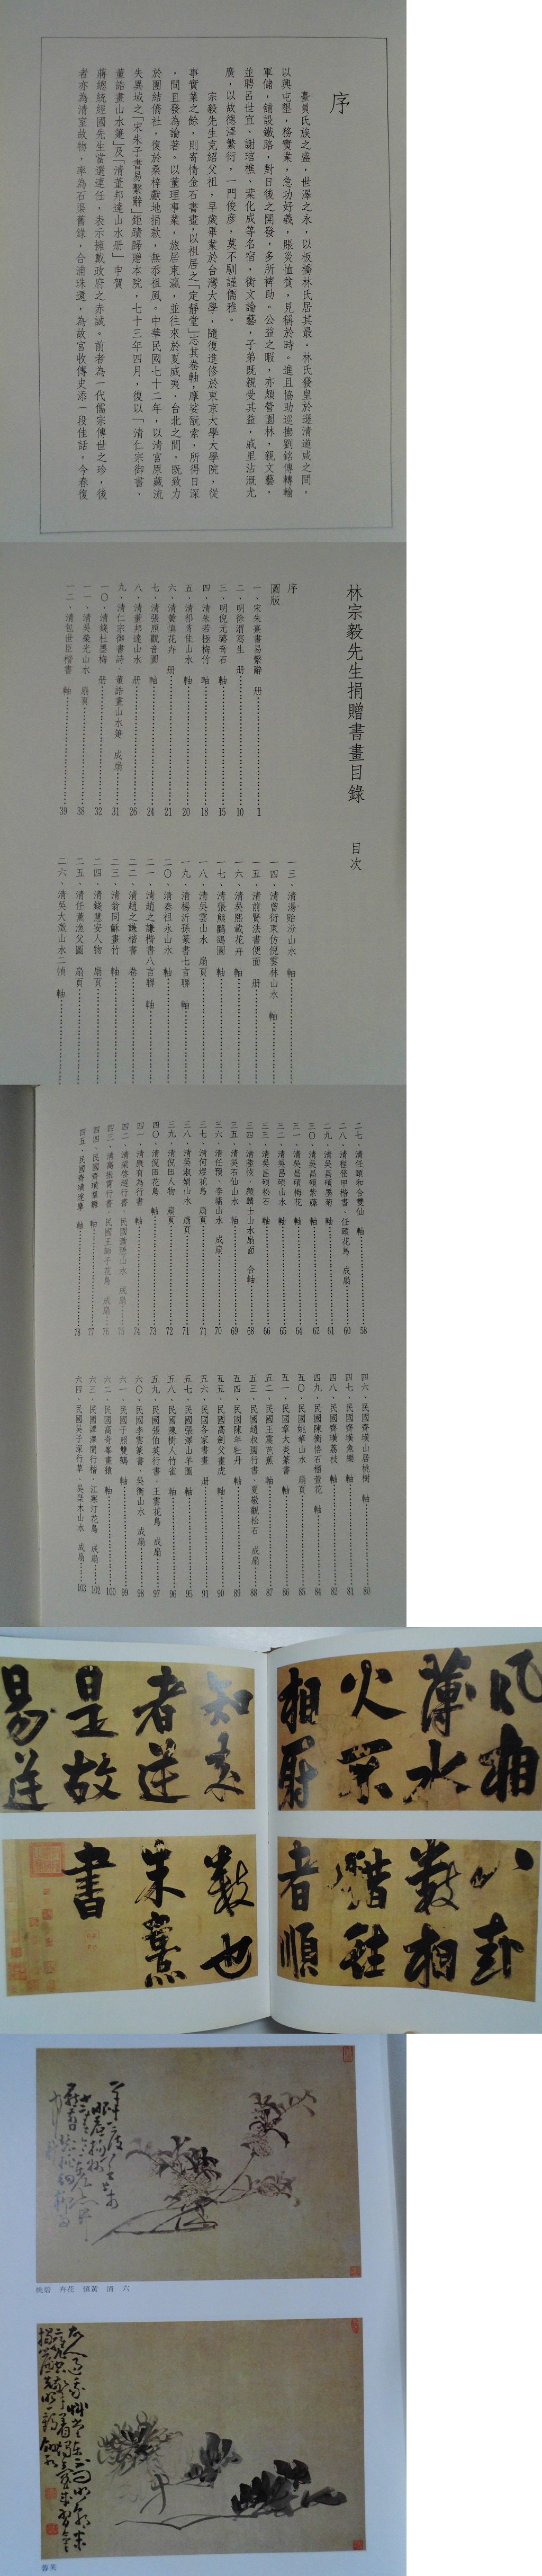 序
臺員氏族之盛，世澤之永，以板橋林氏居其最。林氏發皇於遜清道咸之間，
以興屯墾，務實業，急功好義，賑災恤貧，見稱於時。進且協助巡撫劉銘傳轉輸
軍儲，鋪設鐵路，對日後之開發，多所裨助。公益之暇，亦頗營園林，親文藝，
並聘呂世宜、謝琯樵、葉化成等名宿，衡文論藝，子弟既親受其益，戚里沾溉尤
廣，以故德澤繁衍，一門俊彥，莫不馴謹儒雅。
宗毅先生克紹父祖，早歲畢業於台灣大學，隨復進修於東京大學大學院，從
事實業之餘，則寄情金石書畫，以祖居之「定靜堂」志其卷軸，摩挲翫索，所得日深
，間且發為論著。以董理事業，旅居東瀛，並往來於夏威夷、台北之間。既致力
於團結僑社，復於桑梓獻地捐款，無忝祖風。中華民國七十二年，以清宮原藏流
失異域之「宋朱子書易繫辭」鉅蹟歸贈本院，七十三年四月，復以「清仁宗御書、
董誥畫山水箑」及「清董邦達山水册」申賀
蔣總統經國先生當選連任，表示擁戴政府之赤誠。前者為一代儒宗傳世之珍，後
者亦為清室故物，率為石渠舊錄，合浦珠還，為故宮收傳史添一段佳話。今春復
林宗毅先生捐贈書畫目錄
目次
序
圖版
一、宋朱熹書易繫辭 册 1
二、明徐渭寫生 册 10
三、明倪元璐奇石 軸 15
四、清朱若極梅竹 軸 18
五、清祁豸佳山水 軸 20
六、清黃慎花卉 册 21
七、清張照觀音圖 軸 24
八、清董邦達山水 册 26
九、清仁宗御書詩．董誥畫山水箑 成扇 31
一〇、清錢杜墨梅 册 32
一一、清吳榮光山水 扇頁 38
一二、清包世臣楷書 軸 39
一三、清湯貽汾山水 軸
一四、清曾衍東仿倪雲林山水 軸
一五、清前賢法書便面 册
一六、清吳熙載花卉 軸
一七、清張熊鸜鵒圖 軸
一八、清吳雲山水 扇頁
一九、清楊沂孫篆書七言聯 軸
二〇、清秦祖永山水 軸
二一、清趙之謙楷書八言聯 軸
二二、清趙之謙楷書 卷
二三、清翁同龢畫竹 軸
二四、清錢慧安人物 扇頁
二五、清任薰漁父圖 扇頁
二六、清吳大澂山水二幀 軸
二七、清任頤和合雙仙 軸 58
二八、清程登甲楷書．任頤花鳥 成扇 60
二九、清吳昌碩墨菊 軸 61
三〇、清吳昌碩紫藤 軸 62
三一、清吳昌碩梅花 軸 64
三二、清吳昌碩山水 軸 65
三三、清吳昌碩松石 軸 66
三四、清陸恢．顧麟士山水扇面 合軸 68
三五、清吳石仙山水 軸 69
三六、清任預．李瑞山水 成扇 70
三七、清何煜花鳥 扇頁 71
三八、清吳淑娟山水 扇頁 71
三九、清倪田人物 扇頁 72
四〇、清倪田花鳥 軸 73
四一、清康有為行書 軸 74
四二、清梁啓超行書．民國蕭愻山水 成扇 75
四三、清高振霄行書．民國王師子花鳥 成扇 76
四四、民國齊璜羣雞 軸 77
四五、民國齊璜達摩 軸 78
四六、民國齊璜山居桃樹 軸 80
四七、民國齊璜魚樂 軸 81
四八、民國齊璜荔枝 軸 82
四九、民國陳衡恪石榴萱花 軸 84
五〇、民國姚華山水 扇頁 85
五一、民國章太炎篆書 軸 86
五二、民國王震芭蕉 軸 87
五三、民國趙叔孺行書．夏敬觀松石 成扇 88
五四、民國陳年牡丹 軸 89
五五、民國高劍父畫虎 軸 90
五六、民國各家書畫 册 91
五七、民國張澤山羊圖 軸 95
五八、民國陳樹人竹雀 軸 96
五九、民國張伯英行書．王雲花鳥 成扇 97
六〇、民國李雲篆書．吳衡山水 成扇 98
六一、民國于照雙鶴 軸 99
六二、民國高奇峯畫猿 軸 100
六三、民國譚澤闓行楷．江寒汀花鳥 成扇 102
六四、民國吳子深行草．吳琹木山水 成扇 103
風相
薄水
火不
相射
八卦
數相
錯往
者順
知來
者逆
是故
易逆
數也
朱熹
書
六 清 黃慎 花卉 碧桃
芙蓉